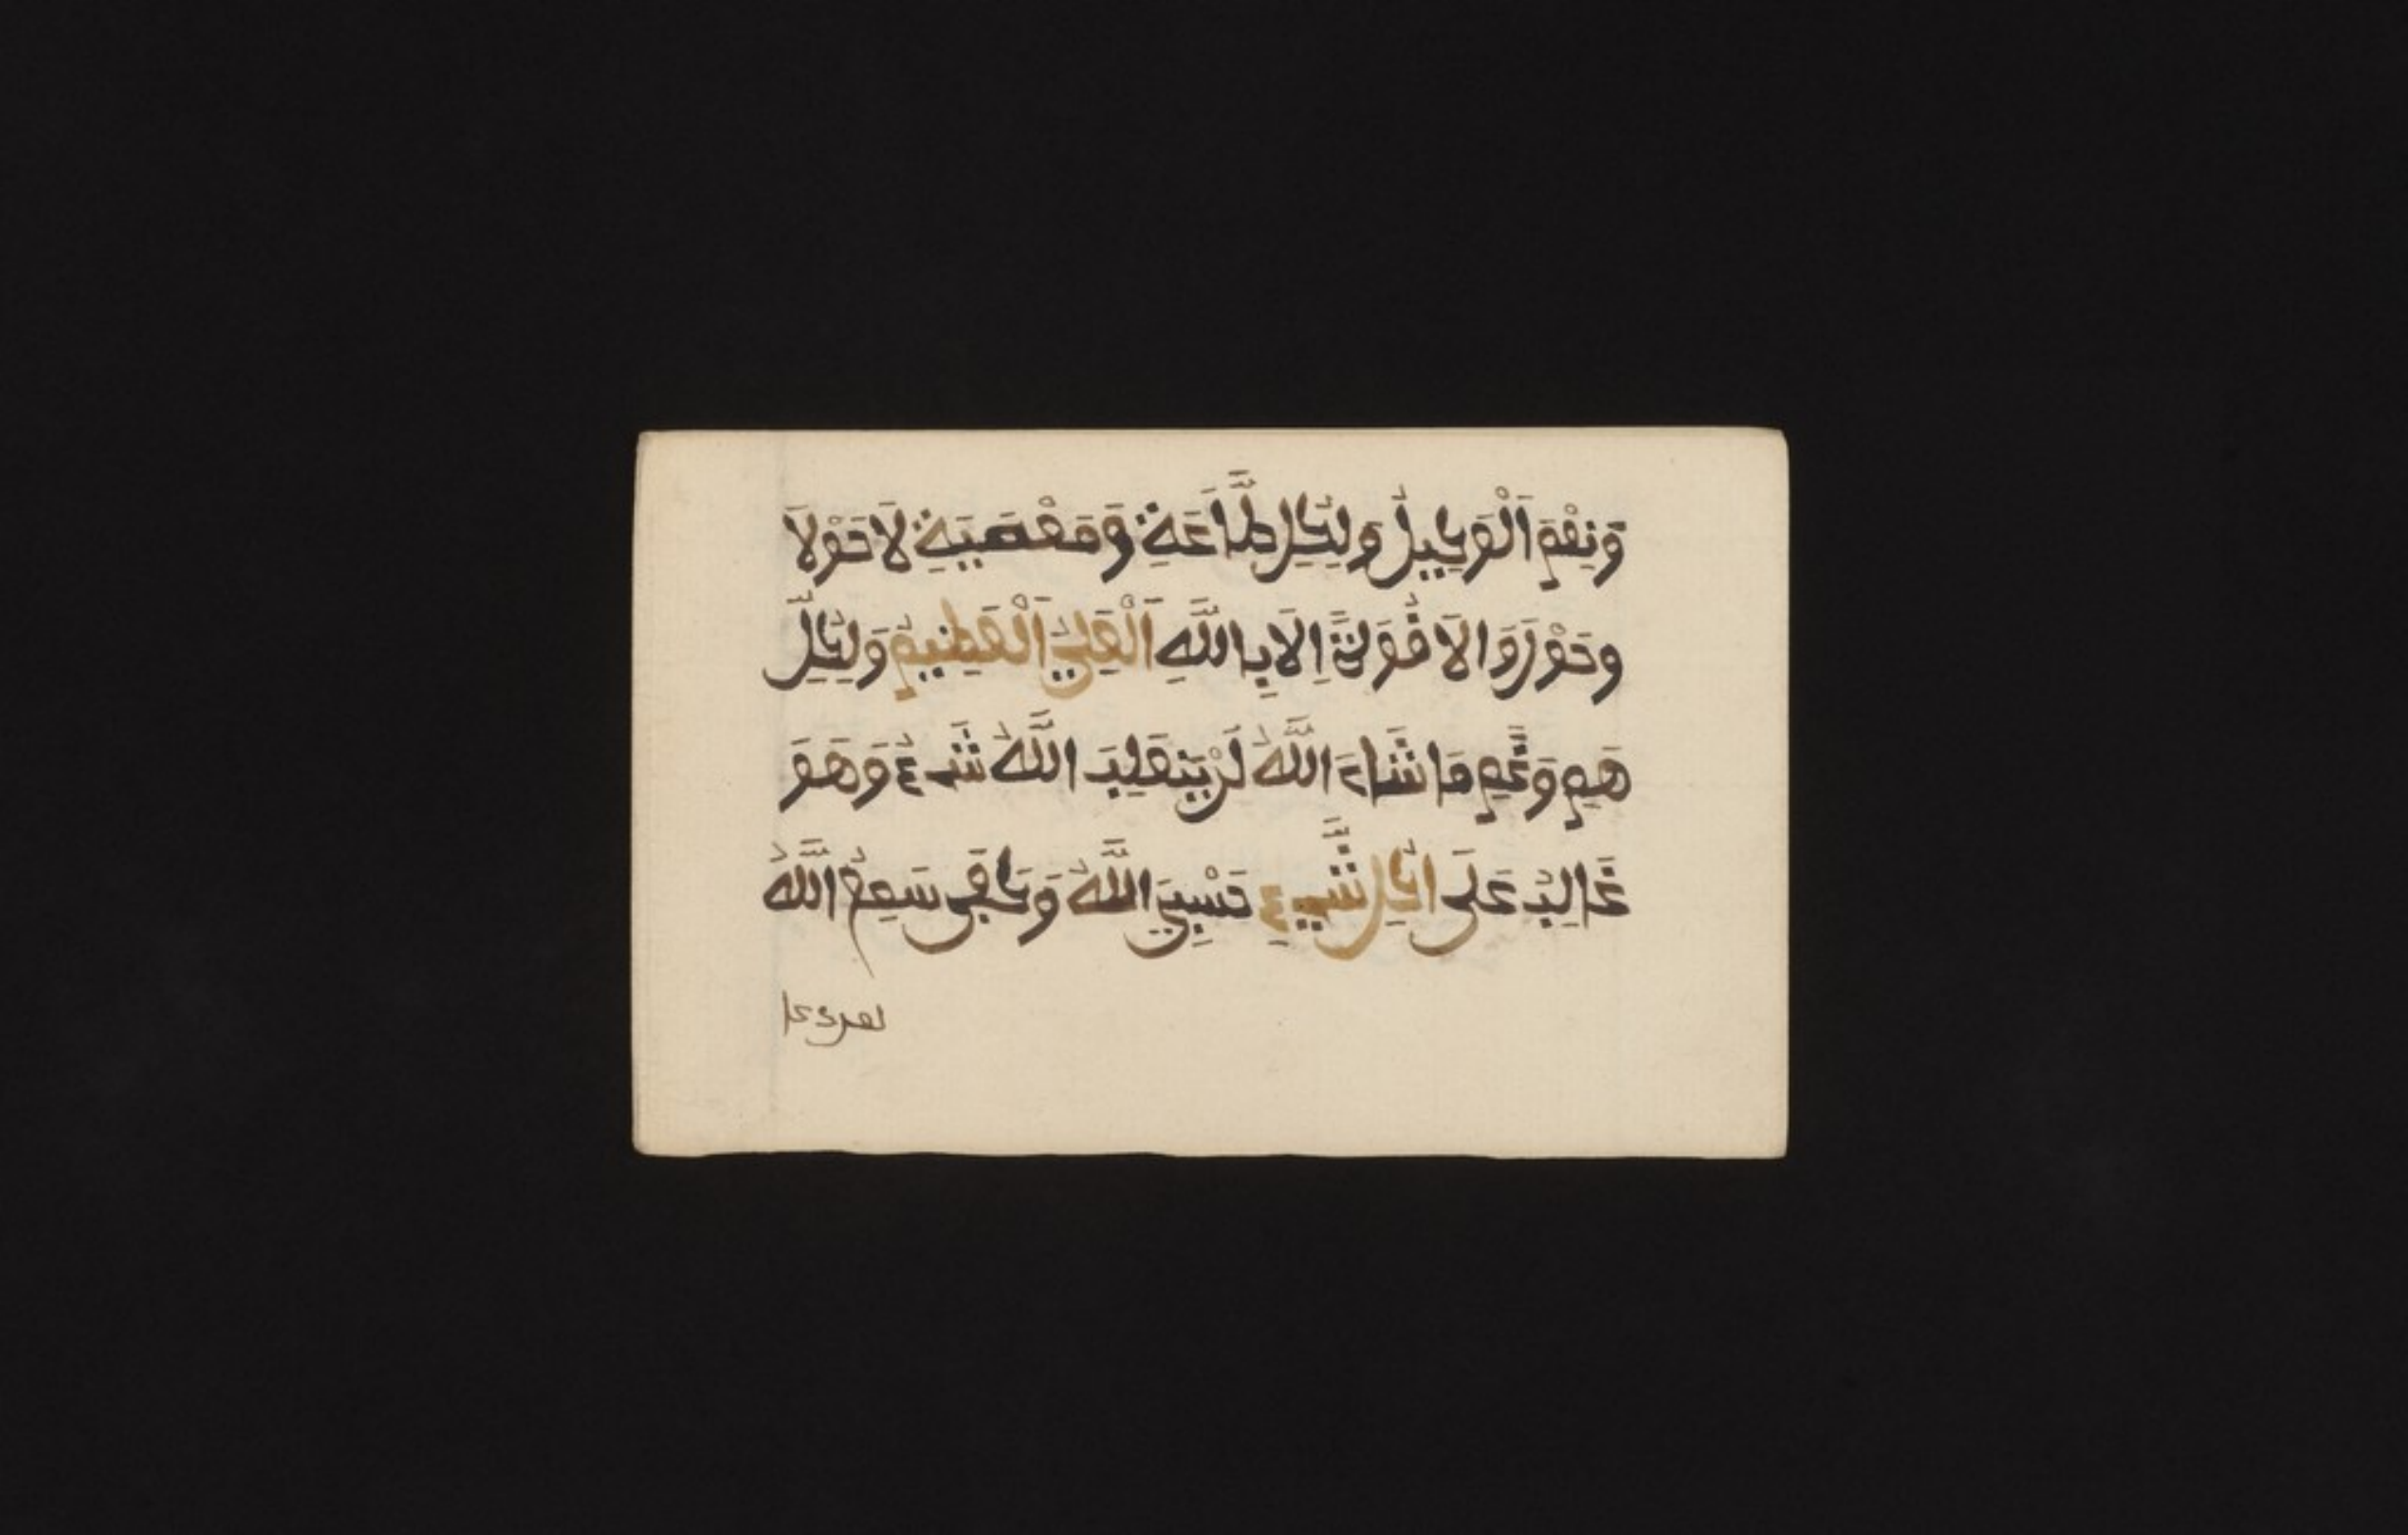 وَنِعْمَ اَلْوَكِيلُ وَلِكُلِّ طَّاعَةٍ وَمَعْصِيَةٍ لَا حَوْلَا
وحَوْلَ وَالَا قُوَّةَ اِلَا بِاللَّهِ اَلْعَلِيُ اَلْعَظِيمُ وَلِكُلِّ
هَمٍ وَغَّمٍ مَا شَاءَ اللَّهُ لَنْ يَغْلِبَ اللَّهُ شَيءُ وَهَوَ
غَالِبُ عَلَى اكُلِ شَّيءٍ حَسْبِيَ اللَّهُ وَكَفَى سَمِعُ اللَّهُ
لمن دعا